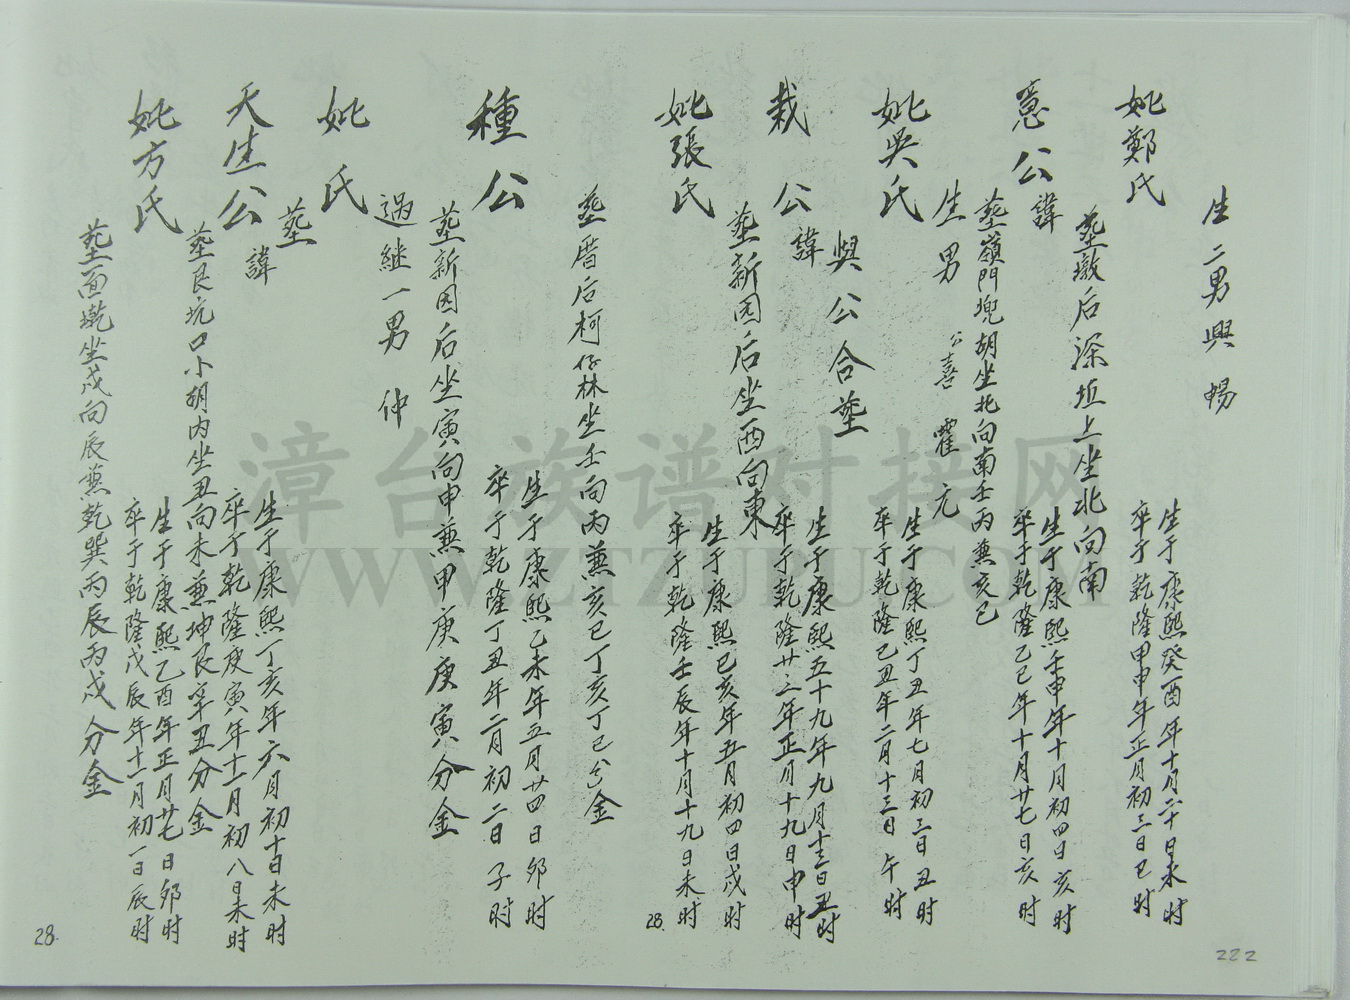 生二男興 暢
妣鄭氏
生于康熙癸酉年十月二十日未时
卒于乾隆甲申年正月初三日巳时
墓墩后深垣上坐北向南
憲公 諱
生于康熙壬申年十月初四日亥时
卒于乾隆乙巳年十月廿七日亥时
墓嶺門兜胡坐北向南壬丙兼亥巳
生男 公喜 霍 元
妣吳氏
生于康熙丁丑年七月初三日丑时
卒于乾隆乙丑年二月十三日午时
與公合墓
栽公 諱
生于康熙五十九年九月十三日丑时
卒于乾隆廿三年正月十九日申时
墓新园后坐西向東
妣張氏
生于康熙己亥年五月初四日戌时
卒于乾隆壬辰年十月十九日未时
28.
墓厝后柯仔林坐壬向丙兼亥巳丁亥丁巳分金
種公
生于康熙乙未年五月廿四日卯时
卒于乾隆丁丑年二月初二日子时
墓新园后坐寅向申兼甲庚庚寅分金
過継一男 仲
妣氏
墓
天生公 諱
生于康熙丁亥年六月初十日未时
卒于乾隆庚寅年十一月初八日未时
墓艮坑口小胡内坐丑向未兼坤艮辛丑分金
妣方氏
生于康熙乙酉年正月廿七日卯时
卒于乾隆戊辰年十一月初一日辰时
墓面墘坐戌向辰兼乾巽丙辰丙戌分金
28.
222
漳台族谱对接网
WWW.ZTZUPU.COM